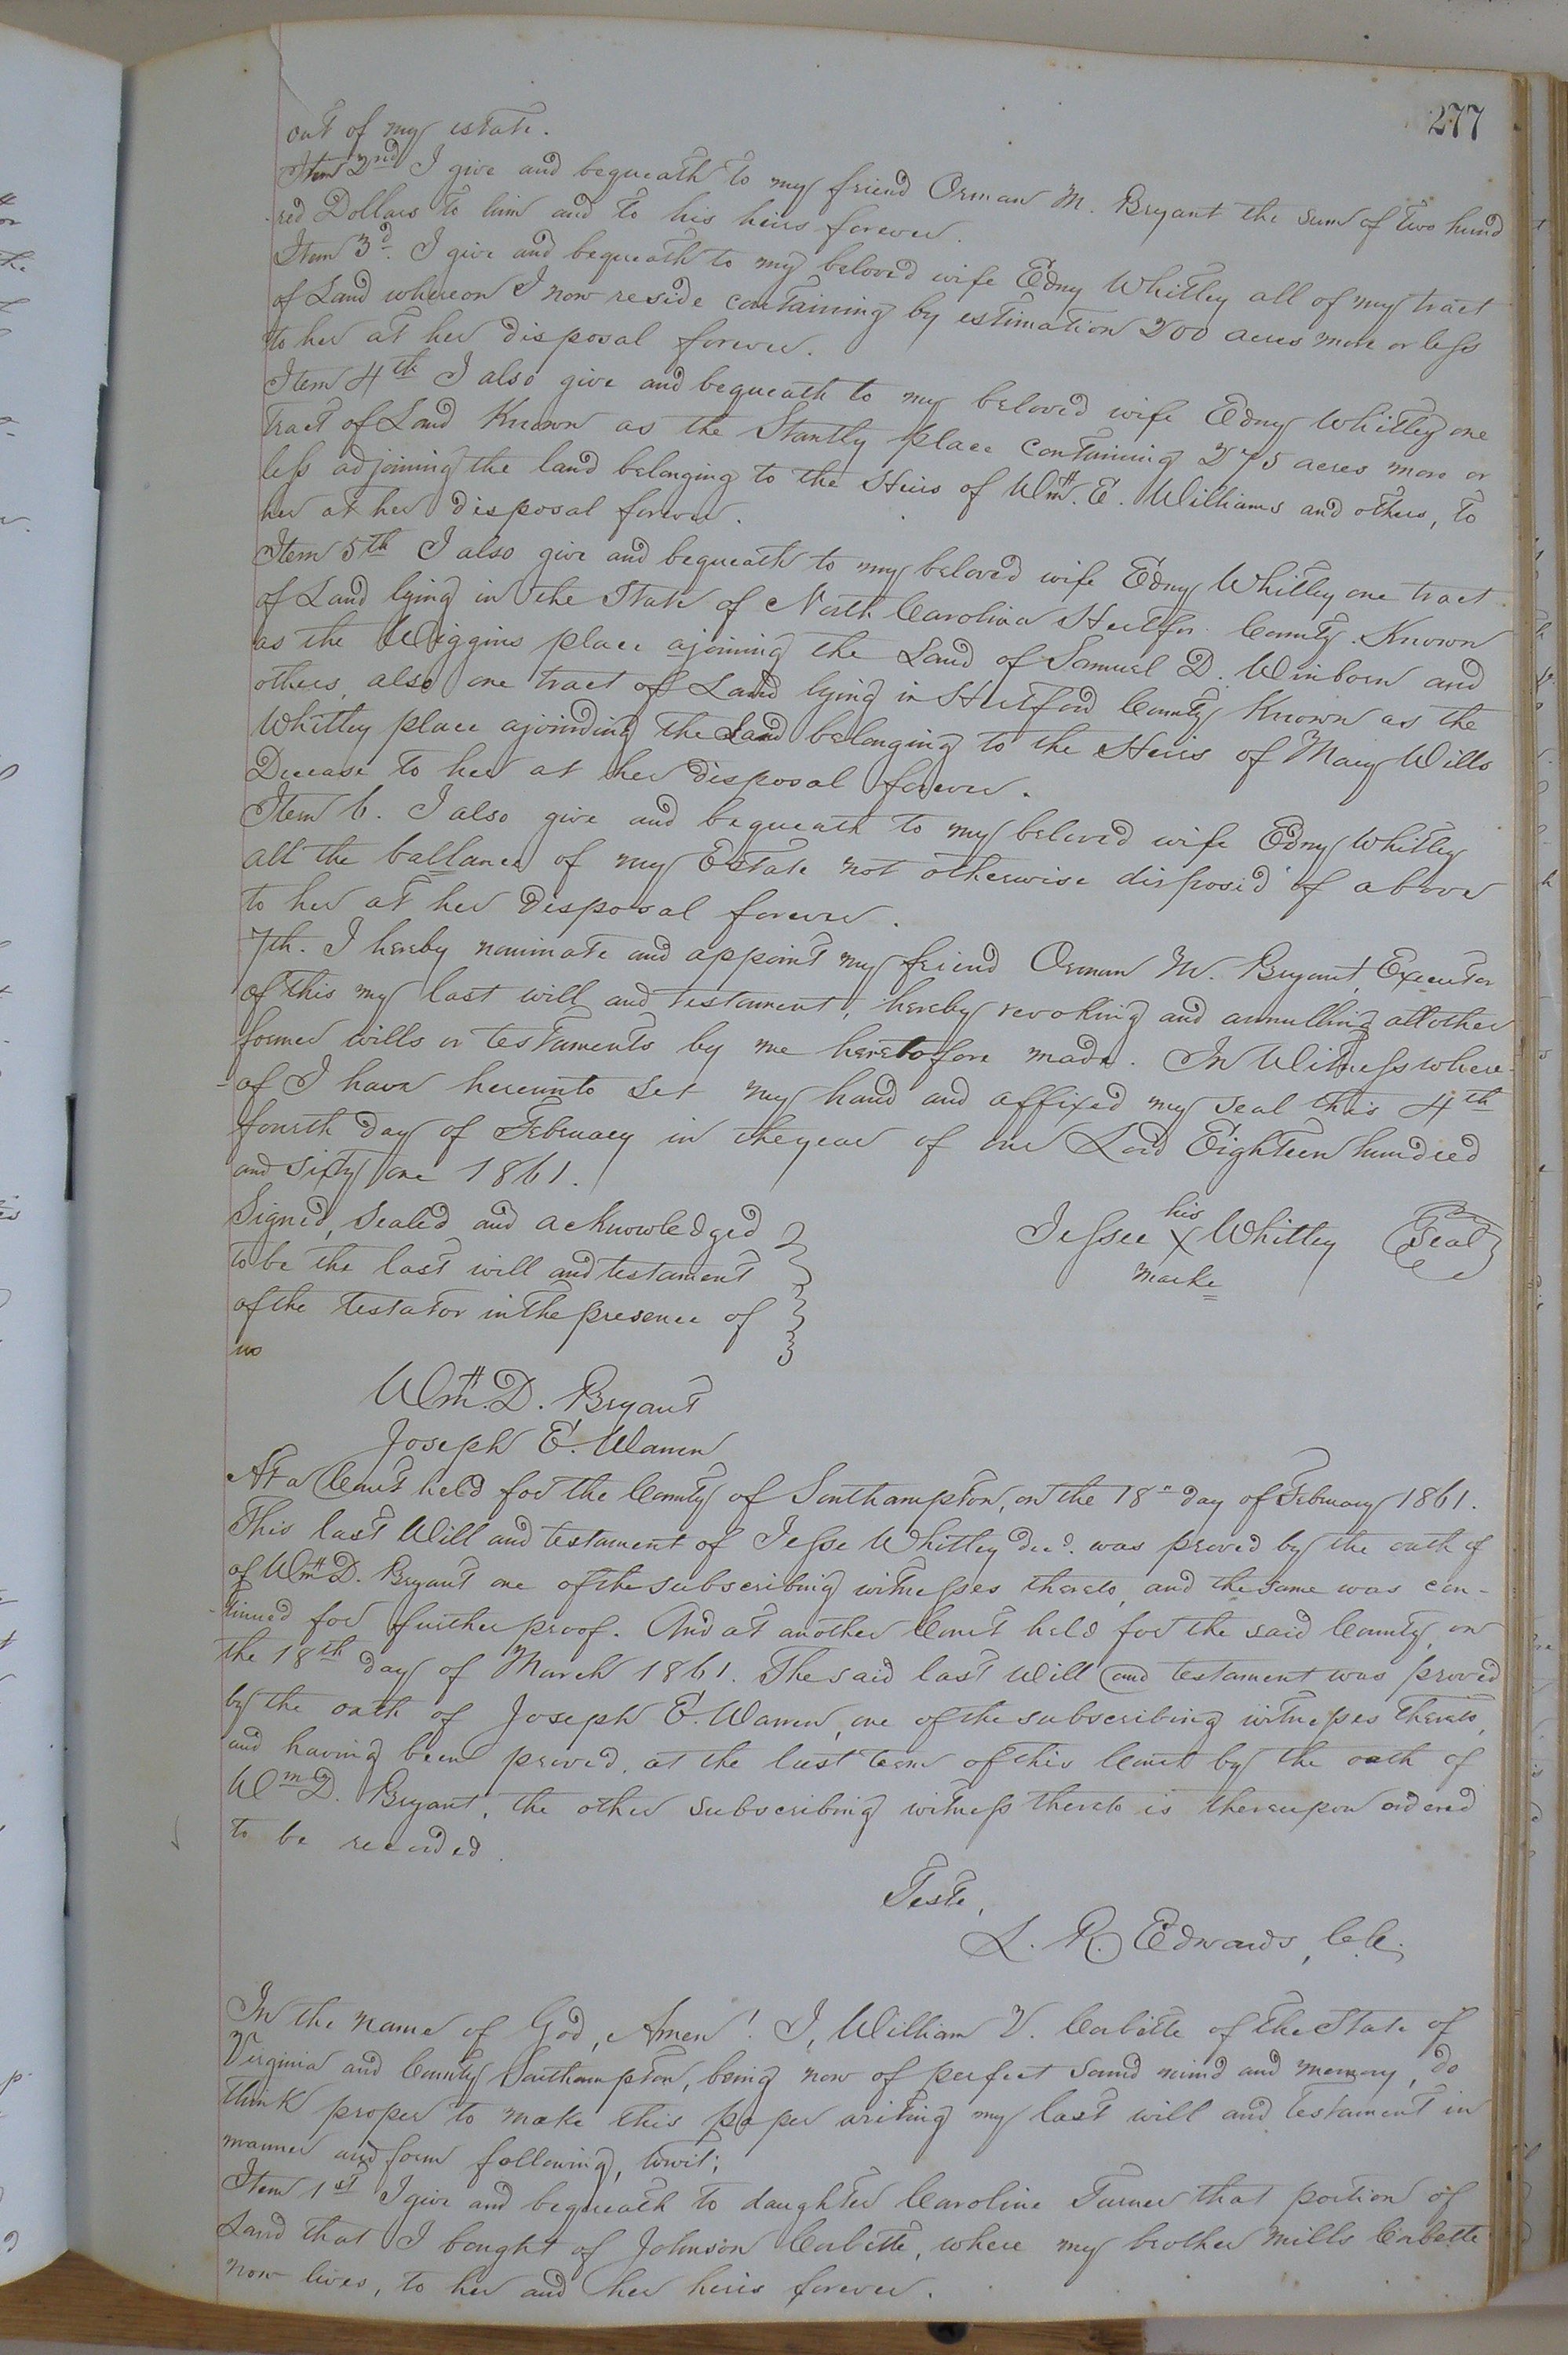 277
out of my estate.
Item 2nd I give and bequeath to my friend Orman M. Bryant the sum of two hund
-red Dollars to him and to his heirs forever.
Item 3d. I give and bequeath to my beloved wife Edny Whitley all of my tract
of Land whereon I now reside containing by estimation 200 acres more or less
to her at her disposal forever.
Item 4th I also give and bequeath to my beloved wife Edny Whitley one
tract of Land Known as the Stantly place containing 275 acres more or
less adjoining the land belonging to the Heirs of Wm. E. Williams and others, to
her at her disposal forever.
Item 5th I also give and bequeath to my beloved wife Edny Whitley one tract
of Land lying in the State of North Carolina Hertfor County. Known
as the Wiggins place ajoining the Land of Samuel D. Winborn and
others, also one tract of Land lying in Hertford County Known as the
Whitley place ajoinding the Land belonging to the Heirs of Mary Wills
Decease to her at her disposal forever.
Item 6. I also give and bequeath to my beloved wife Edny Whitley
all the ballance of my Estate not otherwise disposed of above
to her at her disposal forever.
7th. I hereby nominate and appoint my friend Orman M. Bryant, Executor
of this my last will and testament, hereby revoking and annulling all other
former wills or testaments by me heretofore made. In Witness where-
-of I have hereunto set my hand and affixed my seal this 4th
fourth day of February in the year of our Lord Eighteen hundred
and sixty one 1861.
Signed, Sealed and acknowledged
to be the last will and testament
of the testator in the presence of
us
his
Jessee X Whitley Seal
marke
Wm. D. Bryant
Joseph E. Warren
At a Court held for the County of Southampton, on the 18" day of February 1861.
This last Will and testament of Jesse Whitley decd. was proved by the oath of
of Wm D. Bryant one of the subscribing witnesses thereto, and the same was con-
-tinued for further proof. And at another Court held for the said County, on
the 18th day of March 1861. The said last Will and testament was proved
by the oath of Joseph E. Warren, one of the subscribing witnesses thereto,
and having been proved, at the last term of this Court by the oath of
Wm D. Bryant, the other subscribing witness thereto is thereupon ordered
to be recorded.
Teste,
L. R. Edwards, C.C.
In the name of God, Amen! I, William V. Corbitte of the State of
Virginia and County Southampton, being now of perfect Sound mind and memory, do
think proper to make this paper writing my last will and testament in
manner and form following, towit;
Item 1st I give and bequeath to daughter Caroline Turner that portion of
Land that I bought of Johnson Corbitte, where my brother Mills Corbitte
now lives, to her and her heris forever.